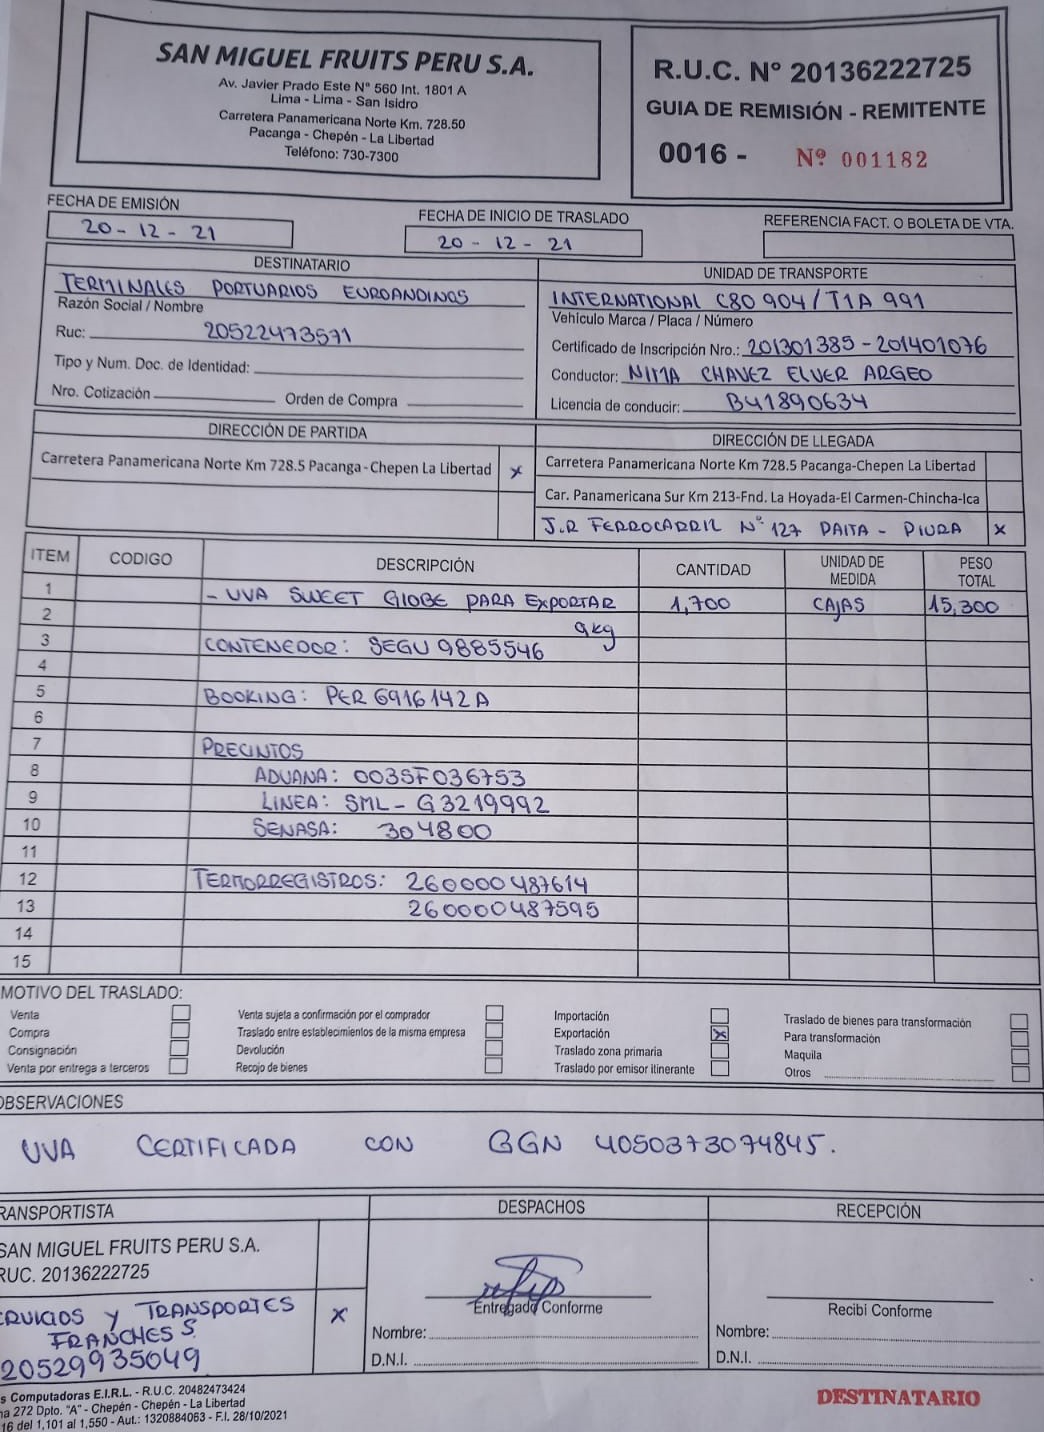 SAN MIGUEL FRUITS PERU S.A.
Av. Javier Prado Este N° 560 Int. 1801 A
Lima - Lima - San Isidro
Carretera Panamericana Norte Km. 728.50
Pacanga - Chepén - La Libertad
Teléfono: 730-7300
R.U.C. N° 20136222725
GUIA DE REMISIÓN - REMITENTE
0016 - Nº 001182
FECHA DE EMISIÓN
20-12-21
FECHA DE INICIO DE TRASLADO
20-12-21
REFERENCIA FACT. O BOLETA DE VTA.
DESTINATARIO
TERMINALES PORTUARIOS EUROANDINOS
Razón Social / Nombre
Ruc: 20522473571
Tipo y Num. Doc. de Identidad:
Nro. Cotización Orden de Compra
UNIDAD DE TRANSPORTE
INTERNATIONAL C80 904/T1A 991
Vehículo Marca / Placa / Número
Certificado de Inscripción Nro.: 201301385-201401076
Conductor: NIMA CHAVEZ ELVER ARGEO
Licencia de conducir: B41890634
DIRECCIÓN DE PARTIDA
Carretera Panamericana Norte Km 728.5 Pacanga-Chepen La Libertad X
DIRECCIÓN DE LLEGADA
Carretera Panamericana Norte Km 728.5 Pacanga-Chepen La Libertad
Car. Panamericana Sur Km 213-Fnd. La Hoyada-El Carmen-Chincha-Ica
J.R FERROCARRIL N° 127 PAITA - PIURA X
ITEM CODIGO DESCRIPCIÓN CANTIDAD UNIDAD DE MEDIDA PESO TOTAL
1 - UVA SWEET GLOBE PARA EXPORTAR 1,700 CAJAS 15,300
2 9kg
3 CONTENEDOR: SEGU 9885546
4
5 BOOKING: PER 6916142A
6
7 PRECINTOS
8 ADUANA: 003SF036753
9 LINEA: SML-G3219992
10 SENASA: 304800
11
12 TERMORREGISTROS: 260000487614
13 260000487595
14
15
MOTIVO DEL TRASLADO:
Venta
Compra
Consignación
Venta por entrega a terceros
Venta sujeta a confirmación por el comprador
Traslado entre establecimientos de la misma empresa
Devolución
Recojo de bienes
Importación
Exportación X
Traslado zona primaria
Traslado por emisor itinerante
Traslado de bienes para transformación
Para transformación
Maquila
Otros
OBSERVACIONES
UVA CERTIFICADA CON GGN 4050373074845.
RANSPORTISTA
SAN MIGUEL FRUITS PERU S.A.
RUC. 20136222725
ERVICIOS Y TRANSPORTES X
FRANCHES S.
20529935049
DESPACHOS
Entregado Conforme
Nombre:
D.N.I.
RECEPCIÓN
Recibi Conforme
Nombre:
D.N.I.
s Computadoras E.I.R.L. - R.U.C. 20482473424
na 272 Dpto. "A" - Chepén - Chepén - La Libertad
16 del 1,101 al 1,550 - Aut.: 1320884063 - F.I. 28/10/2021
DESTINATARIO